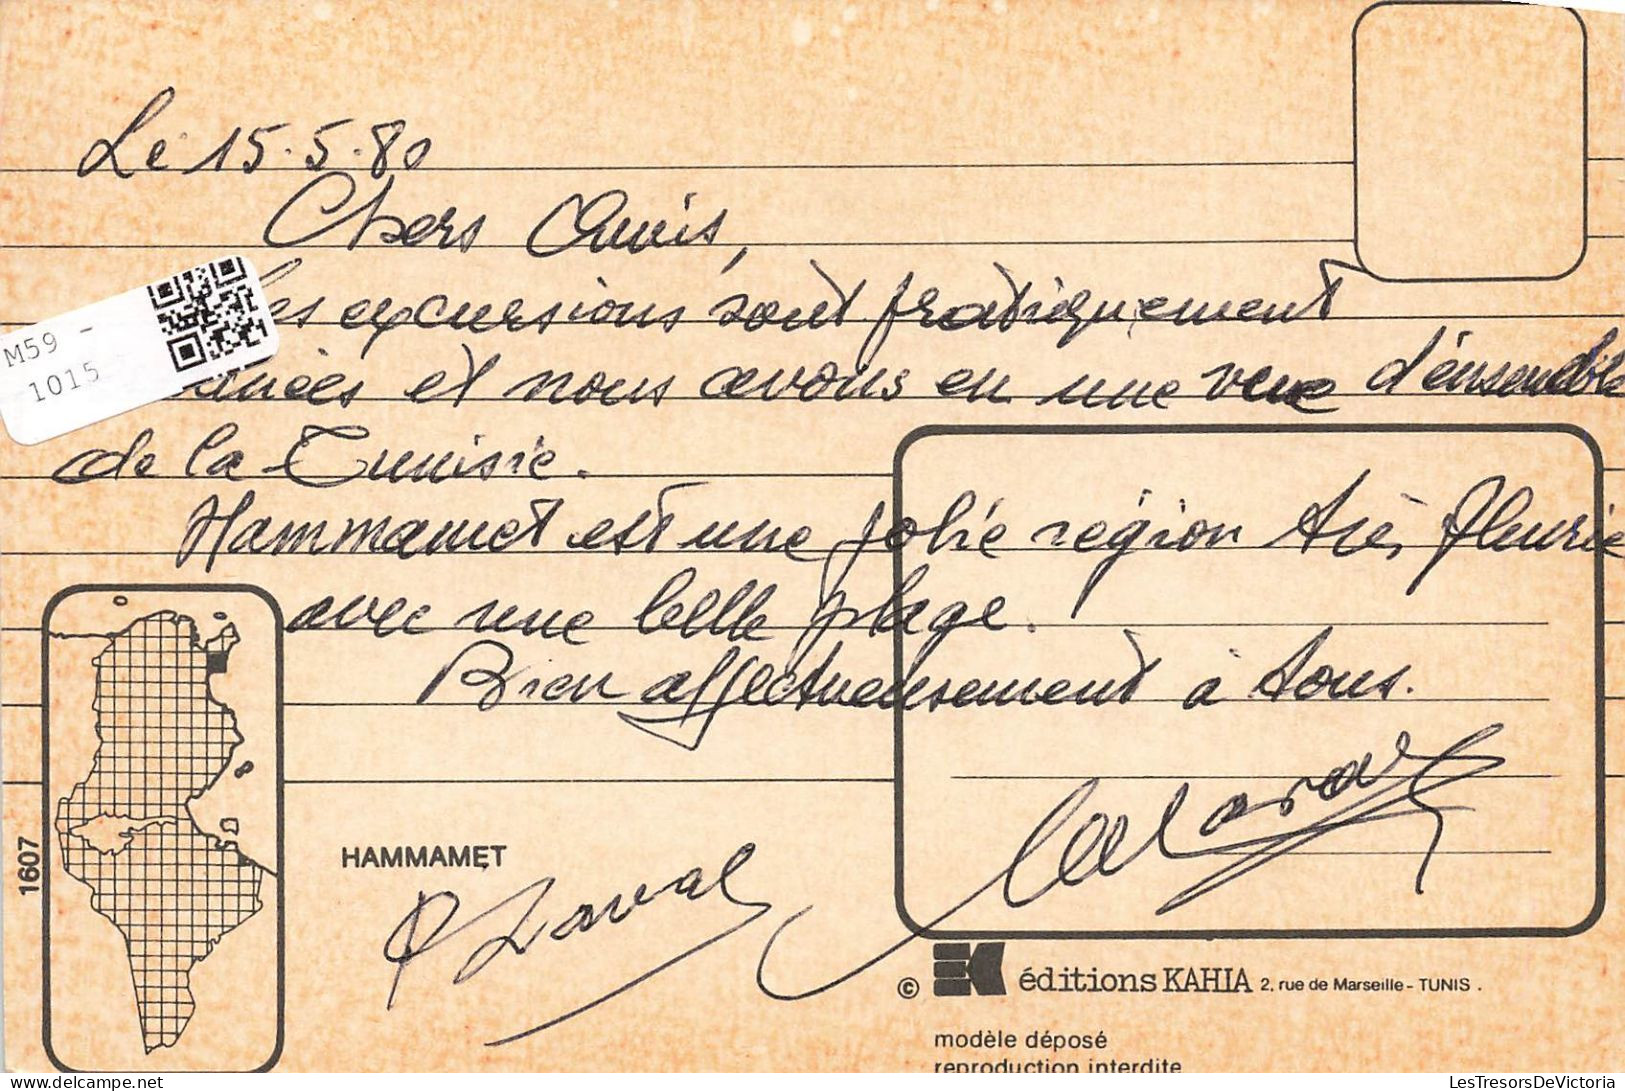 Le 15.5.80
Chers Amis,
Les excursions sont pratiquement
et nous avons eu une vue d'ensemble
de la Tunisie.
Hammamet est une jolie région très fleurie
avec une belle plage.
Bien affectueusement à tous.
M59 -
1015
1607
HAMMAMET
P Laval
© éditions KAHIA 2, rue de Marseille - TUNIS.
modèle déposé
reproduction interdite
delcampe.net
LesTresorsDeVictoria